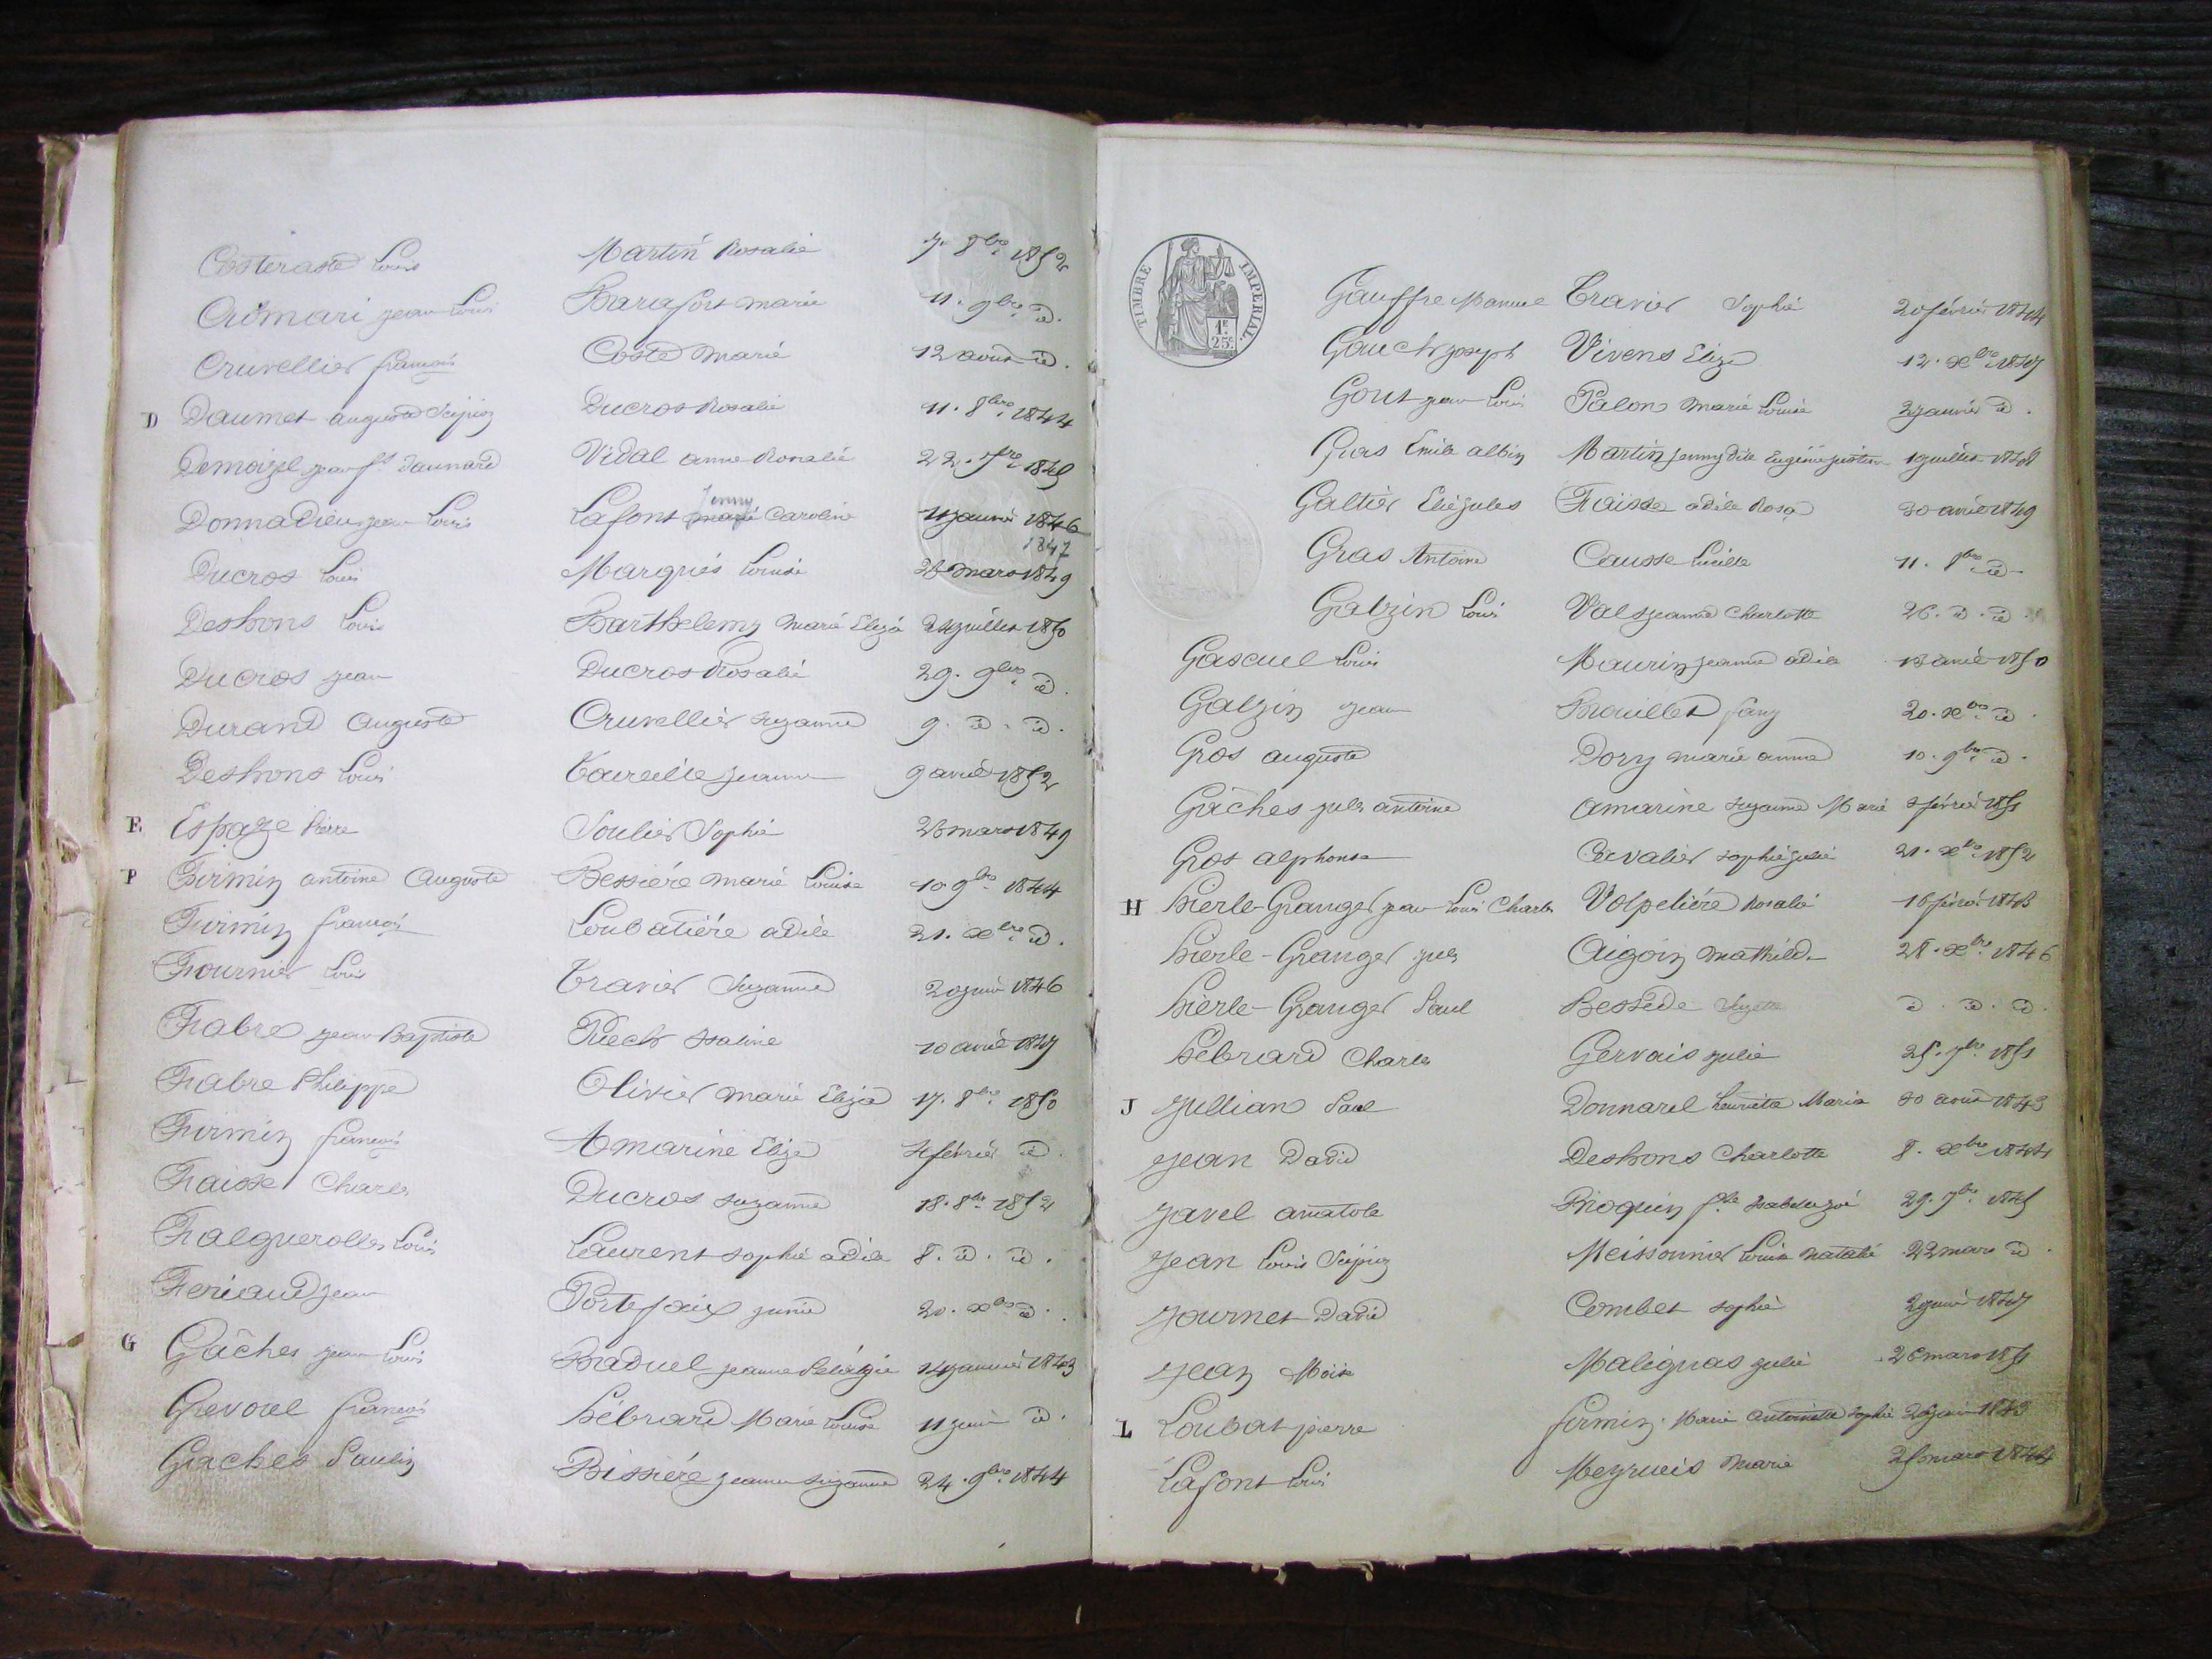 Costeraste Louis Martin Rosalie 7. 8bre 1852
Crémari jean Louis Barafort marie 11. 9bre id.
Cruvellier françois Coste Marie 12 aout id.
D Daumet auguste Scipion Ducros Rosalie 11. 8bre 1844
Demoizel jean fs Vidal anne Rosalie 22. 7bre 1845
Donnadieu jean Louis Lafont Jenny Caroline 11 janvier 1846
1847
Ducros Louis Marquès Louise 26 mars 1849
Deshons Louis Barthelemy Marie Eliza 24 juillet 1850
Ducros jean Ducros Rosalie 29. 9bre id.
Durand Auguste Cruvellier Suzanne 9. id. id.
Deshons Louis Taureille jeanne 9 avril 1852
E Espaze Pierre Soulier Sophie 26 mars 1849
F Firmin antoine Auguste Bessière marie Louise 10 9bre 1844
Firmin françois Loubatière adèle 21. xbre id.
Fournier Louis Travier Suzanne 20 juin 1846
Fabre jean Baptiste Puech 10 avril 1847
Fabre Philippe Olivier marie Eliza 17. 8bre 1850
Firmin françois Amarine Eliza 4 février id.
Fraisse Charles Ducros suzanne 18. 8bre 1852
Falguerolles Louis Laurent sophie adèle 8. id. id.
Feriaud jean Portefaix junie 20. xbre id.
G Gâches jean Louis Braduel jeanne Pelagie 14 janvier 1843
Grevoul françois hébrard Marie Louise 11 juin id.
Gaches Paulin Bissière jeanne suzanne 24. 9bre 1844
TIMBRE IMPERIAL
1F. 25c.
Gauffre Manuel Travier Sophie 20 février 1844
Gauch joseph Vivens Eliza 12. xbre 1847
Gout jean Louis Palon Marie Louise 2 janvier id.
Gras Emile albin Martin jenny dite Eugénie justine 1 juillet 1848
Galtier Elie jules Fraisse adèle Rosa 30 avril 1849
Gras Antoine Causse Lucille 11. 8bre id.
Galzin Louis Vals jeanne Charlotte 26. id. id.
Gascuel Louis Maurin jeanne adèle 13 avril 1850
Galzin jean Brouillet fany 20. xbre id.
Gros auguste Dory marie anne 10. 9bre id.
Gâches jules antoine Amarine suzanne Marie 8 février 1851
Gros alphonse Cavalier sophie julie 21. xbre 1852
H hierle-Granger jean Louis Charles Volpelière Rosalie 16 février 1843
hierle-Granger jules Aigoin mathilde 28. xbre 1846
hierle-Granger Paul Bessède id. id. id.
hébrard Charles Gervais julie 25. 7bre 1851
J Jullian Paul Donnarel henriette Maria 30 aout 1843
Jean David Deshons Charlotte 8. xbre 1844
Javel anatole 29. 7bre 1845
Jean Louis Scipion Meissonnier Louise Natalie 22 mars id.
Journet David Combet sophie 2 juin 1847
Jean Moïse Malignas julie 26 mars 1851
L Loubat pierre firmin Marie Antoinette Sophie 26 juin 1843
Lafont Louis Meyrueis Marie 25 mars 1844